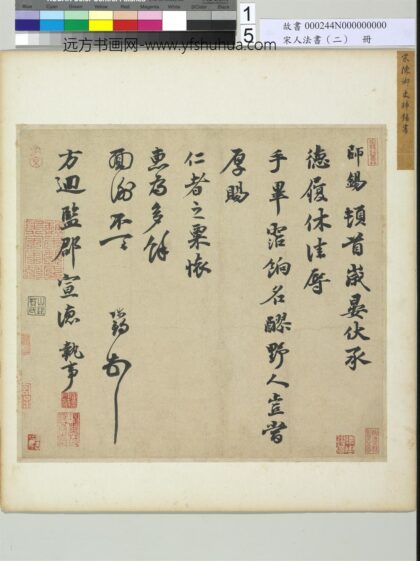 15
故書 000244N000000000
宋人法書（二） 冊
远方书画网-www.yfshuhua.com
宋陳師錫書
師錫頓首歲晏伏承
德履休佳辱
手畢寵餉名醪野人豈嘗
厚賜
仁者之粟懷
惠為多餘
面謝不一一
師錫
方迴監郡宣德執事